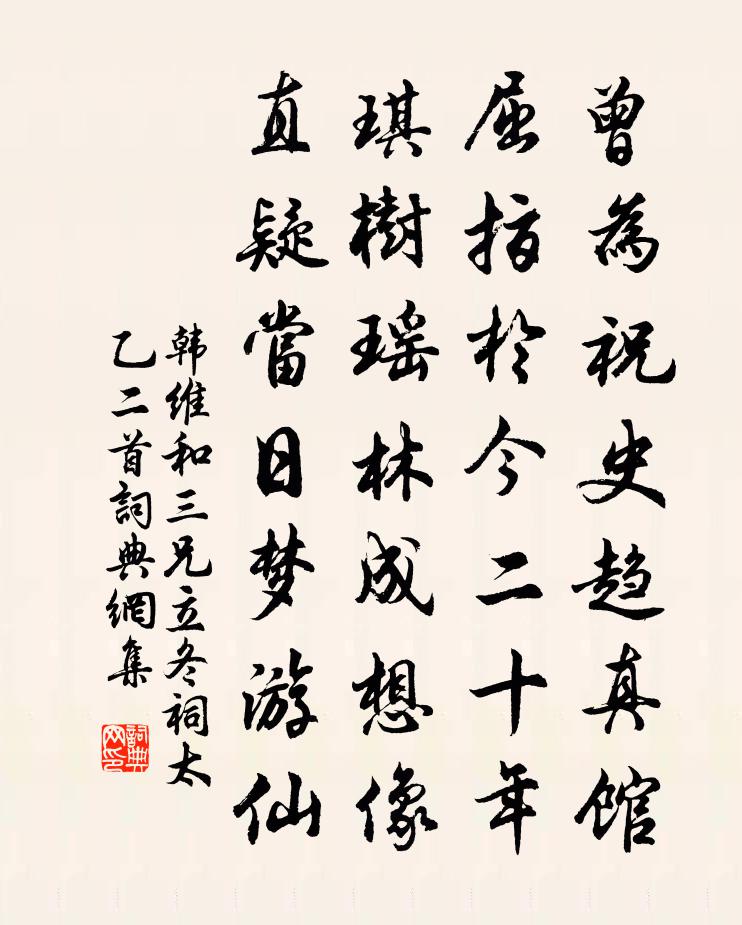 曾為祝史趋真館
屈指於今二十年
琪樹瑶林成想像
直疑當日梦游仙
韩維和三兄立冬祠太
乙二首詞典網集
詞典网印